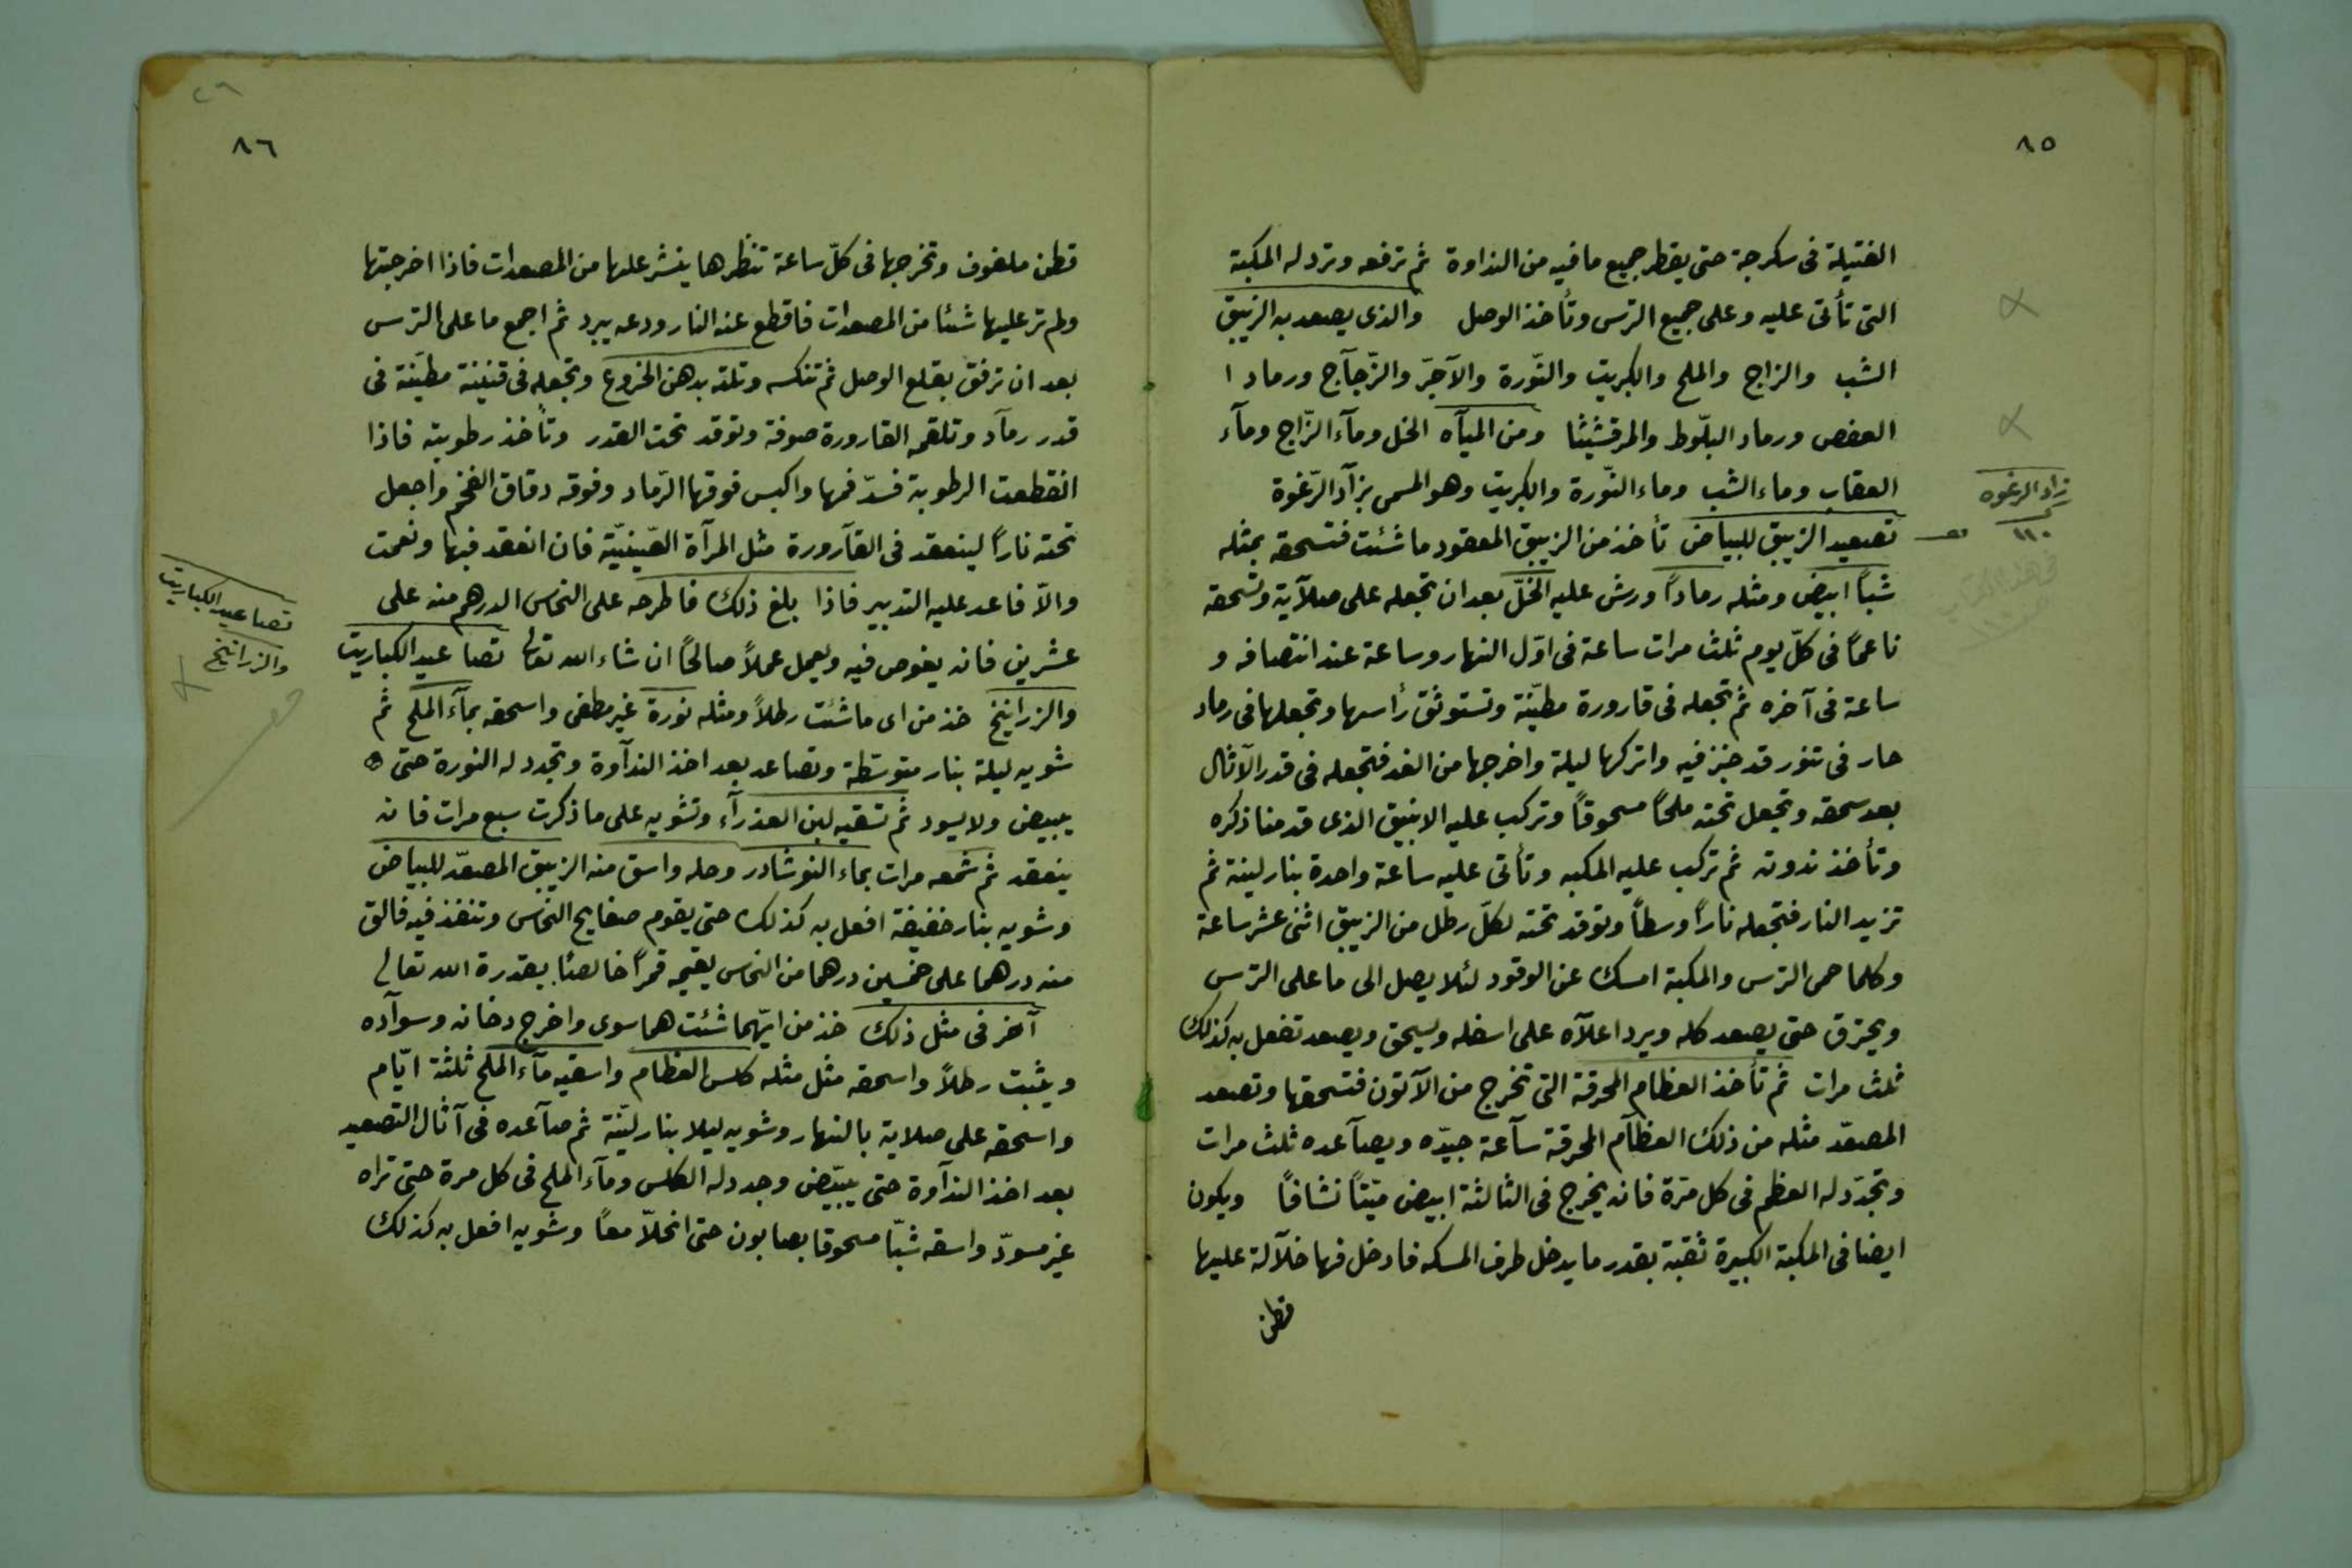 ٨٥
الفتيلة فى سكرجة حتى يقطر جميع ما فيه من النداوة ثم ترفعه وترد له المكبة
التى تأتى عليه وعلى جميع الترس وتأخذ الوصل والذى يصعد به الزيبق
الشب والزاج والملح والكبريت والنّورة والآجرّ والزّجآج ورماد ا
العفص ورماد البلّوط والمرقشيثا ومن الميآه الخل ومآء الزّاج ومآء
العقاب وماء الشب وماء النّورة والكبريت وهو المسمى بزآد الرّغوة
تصعيد الزيبق للبياض تأخذ من الزيبق المعقود ما شئت فتسحقه بمثله
شبّاً ابيض ومثله رماداً ورش عليه الخلّ بعد ان تجعله على صلآية وتسحقه
ناعماً فى كلّ يوم ثلث مرات ساعة فى اوّل النهار وساعة عند انتصافه و
ساعة فى آخره ثم تجعله فى قارورة مطيّنة وتستوثق رأسها وتجعلها فى رماد
حار فى تنور قد خبز فيه واتركها ليلة واخرجها من الغد فتجعله فى قدر الآثال
بعد سحقه وتجعل تحته ملحاً مسحوقاً وتركب عليه الانبيق الذى قدمنا ذكره
وتأخذ ندوته ثم تركب عليه المكبه وتأتى عليه ساعة واحدة بنار لينة ثم
تزيد النار فتجعله ناراً وسطاً وتوقد تحته لكلّ رطل من الزيبق اثنى عشر ساعة
وكلما حمى الترس والمكبة امسك عن الوقود لئلا يصل الى ما على الترس
ويحترق حتى يصعد كله ويرد اعلآه على اسفله ويسحق ويصعد تفعل به كذلك
ثلث مرات ثم تأخذ العظام المحرقة التى تخرج من الآتون فتسحقها وتصعد
المصعّد مثله من ذلك العظآم المحرقة سآعة جيّده ويصآعده ثلث مرات
وتجدّد له العظم فى كل مرّة فانه يخرج فى الثالثة ابيض ميّتاً نشافاً ويكون
ايضا فى المكبة الكبيرة ثقبة بقدر ما يدخل طرف المسكه فادخل فيها خلآلة عليها
قطن
زاد الرغوه
١١٠
٨٦
قطن ملفوف وتخرجها فى كلّ ساعة تنظرها ينشر عليها من المصعدات فاذا اخرجتها
ولم تر عليها شئا من المصعدات فاقطع عنه النار ودعه يبرد ثم اجمع ما على الترس
بعد ان ترفق بقلع الوصل ثم تنكسه وتلته بدهن الخروع وتجعله فى قنينة مطيّنة فى
قدر رمآد وتلقمه القارورة صوفة وتوقد تحت القدر وتأخذ رطوبته فاذا
انقطعت الرطوبة فسدّ فمها واكبس فوقها الرّماد وفوقه دقاق الفخم واجعل
تحته ناراً لينعقد فى القآرورة مثل المرآة الصّينيّة فان انعقد فيها ونعمت
والاّ فاعد عليه التدبير فاذا بلغ ذلك فاطرحه على النحاس الدرهم منه على
عشرين فانه يغوص فيه ويعمل عملاً صالحاً ان شاء الله تعالى تصاعيد الكباريت
والزرانيخ خذ من اى ما شئت رطلاً ومثله نورة غير مطفى واسحقه بمآء الملح ثم
شويه ليلة بنار متوسّطة وتصاعد بعد اخذ الندآوة وتجدد له النورة حتى
يبيض ولا يسود ثم تسقيه لبن العذرآء وتشويه على ما ذكرت سبع مرات فانه
ينعقد ثم شمعه مرات بماء النوشادر وحله واسق منه الزيبق المصعّد للبياض
وشويه بنار خفيفة افعل به كذلك حتى يقوم صفايح النحاس وتنفذ فيه فالق
منه درهما على خمسين درهما من النحاس يقيمه قمراً خالصاً بقدرة الله تعالى
آخر فى مثل ذلك خذ من ايّهما شئت هما سوى واخرج دخانه وسوآده
ويثبت رطلاً واسحقه مثل مثله كلس العظام واسقيه مآء الملح ثلثة ايّام
واسحقه على صلاية بالنهار وشويه ليلا بنار ليّنة ثم صآعده فى آثال التصعيد
بعد اخذ الندآوة حتى يبيّض وجدد له الكلس ومآء الملح فى كل مرة حتى تراه
غير مسودّ واسقه شبّا مسحوقا بصابون حتى انحلاّ معاً وشويه افعل به كذلك
تصاعيد الكباريت
والزرانيخ